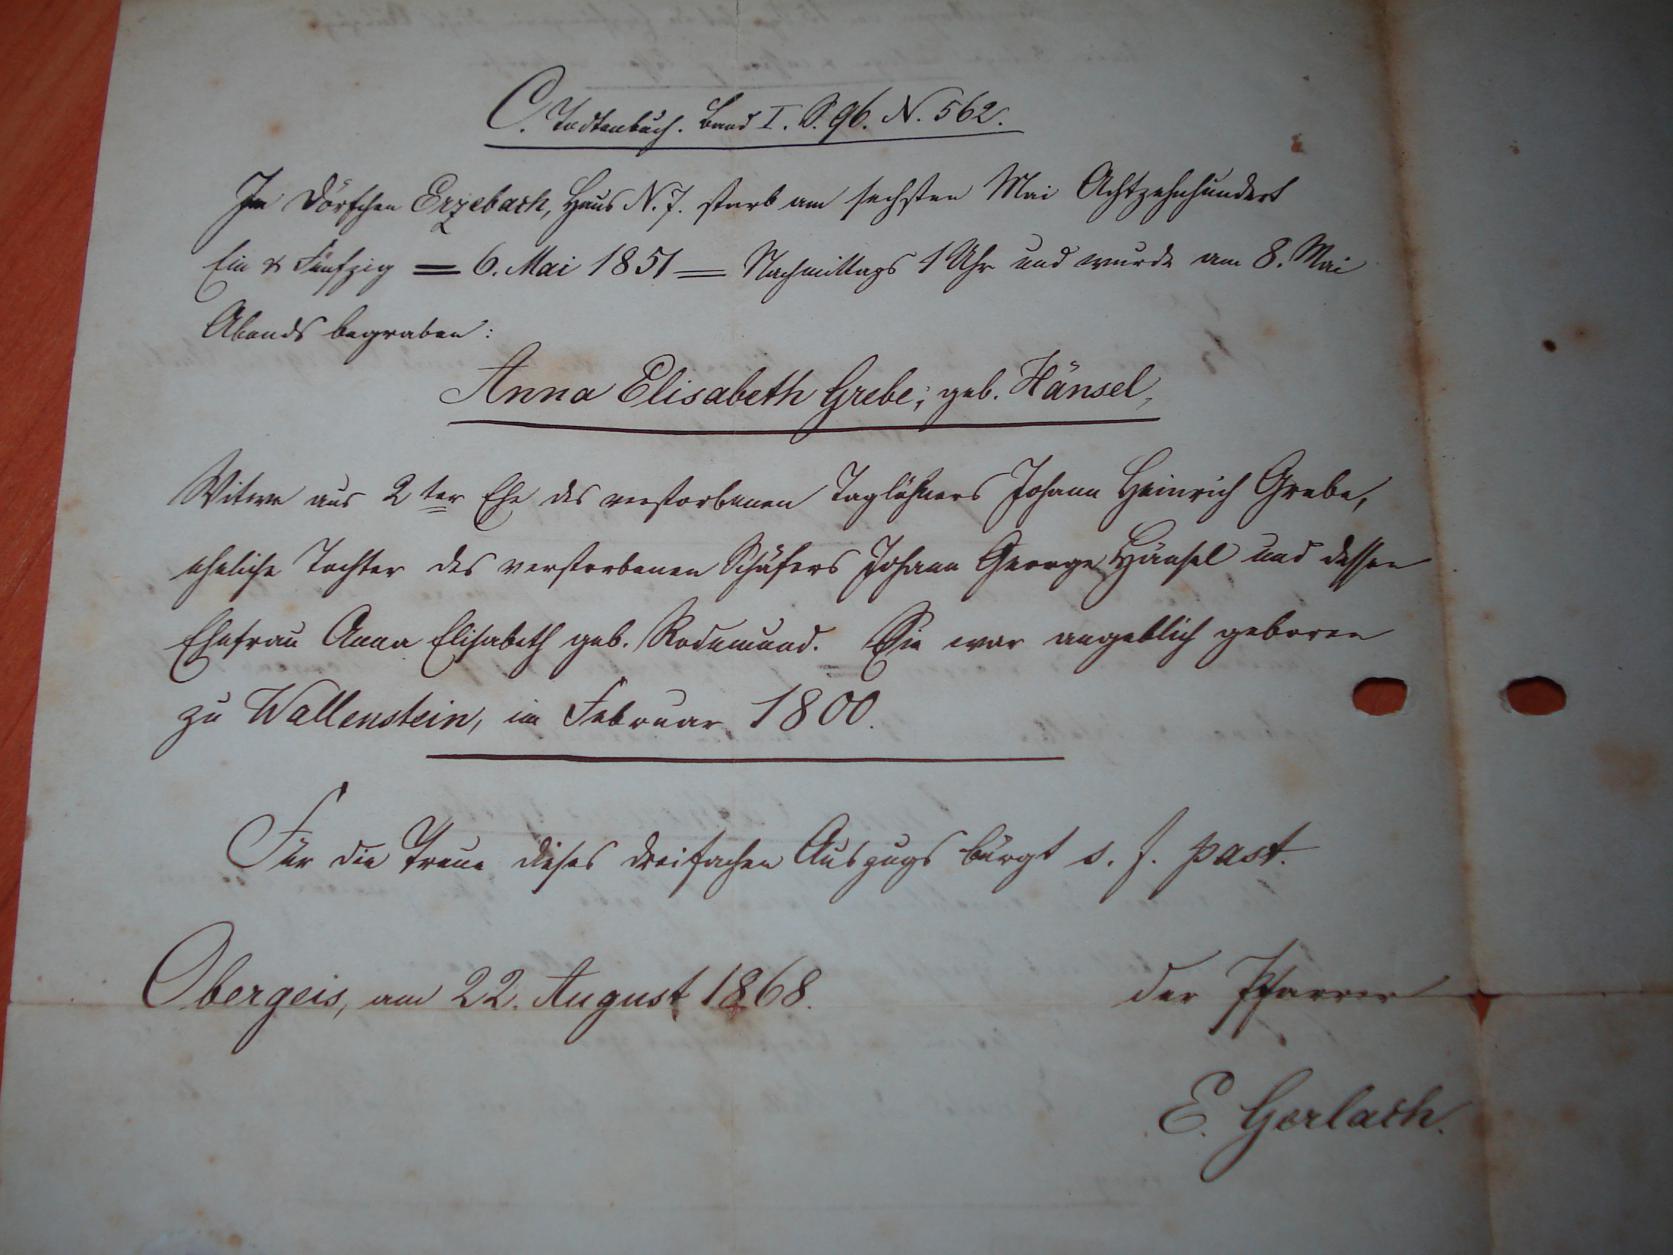 C. Todtenbuch. Band I. S. 96. N. 562.
Im Dörfchen Erzebach, Haus N. 7. starb am sechsten Mai Achtzehnhundert
Ein & Fünfzig = 6. Mai 1851 = Nachmittags 1 Uhr und wurde am 8. Mai
Abends begraben:
Anna Elisabeth Grebe, geb. Hänsel,
Witwe aus 2ter Ehe des verstorbenen Taglöhners Johann Heinrich Grebe,
eheliche Tochter des verstorbenen Schäfers Johann George Hänsel und dessen
Ehefrau Anna Elisabeth geb. Rodemund. Sie war angeblich geboren
zu Wallenstein, im Februar 1800.
Für die Treue dieses dreifachen Auszugs bürgt s. f. past.
Obergeis, am 22. August 1868. der Pfarrer
E. Gerlach.